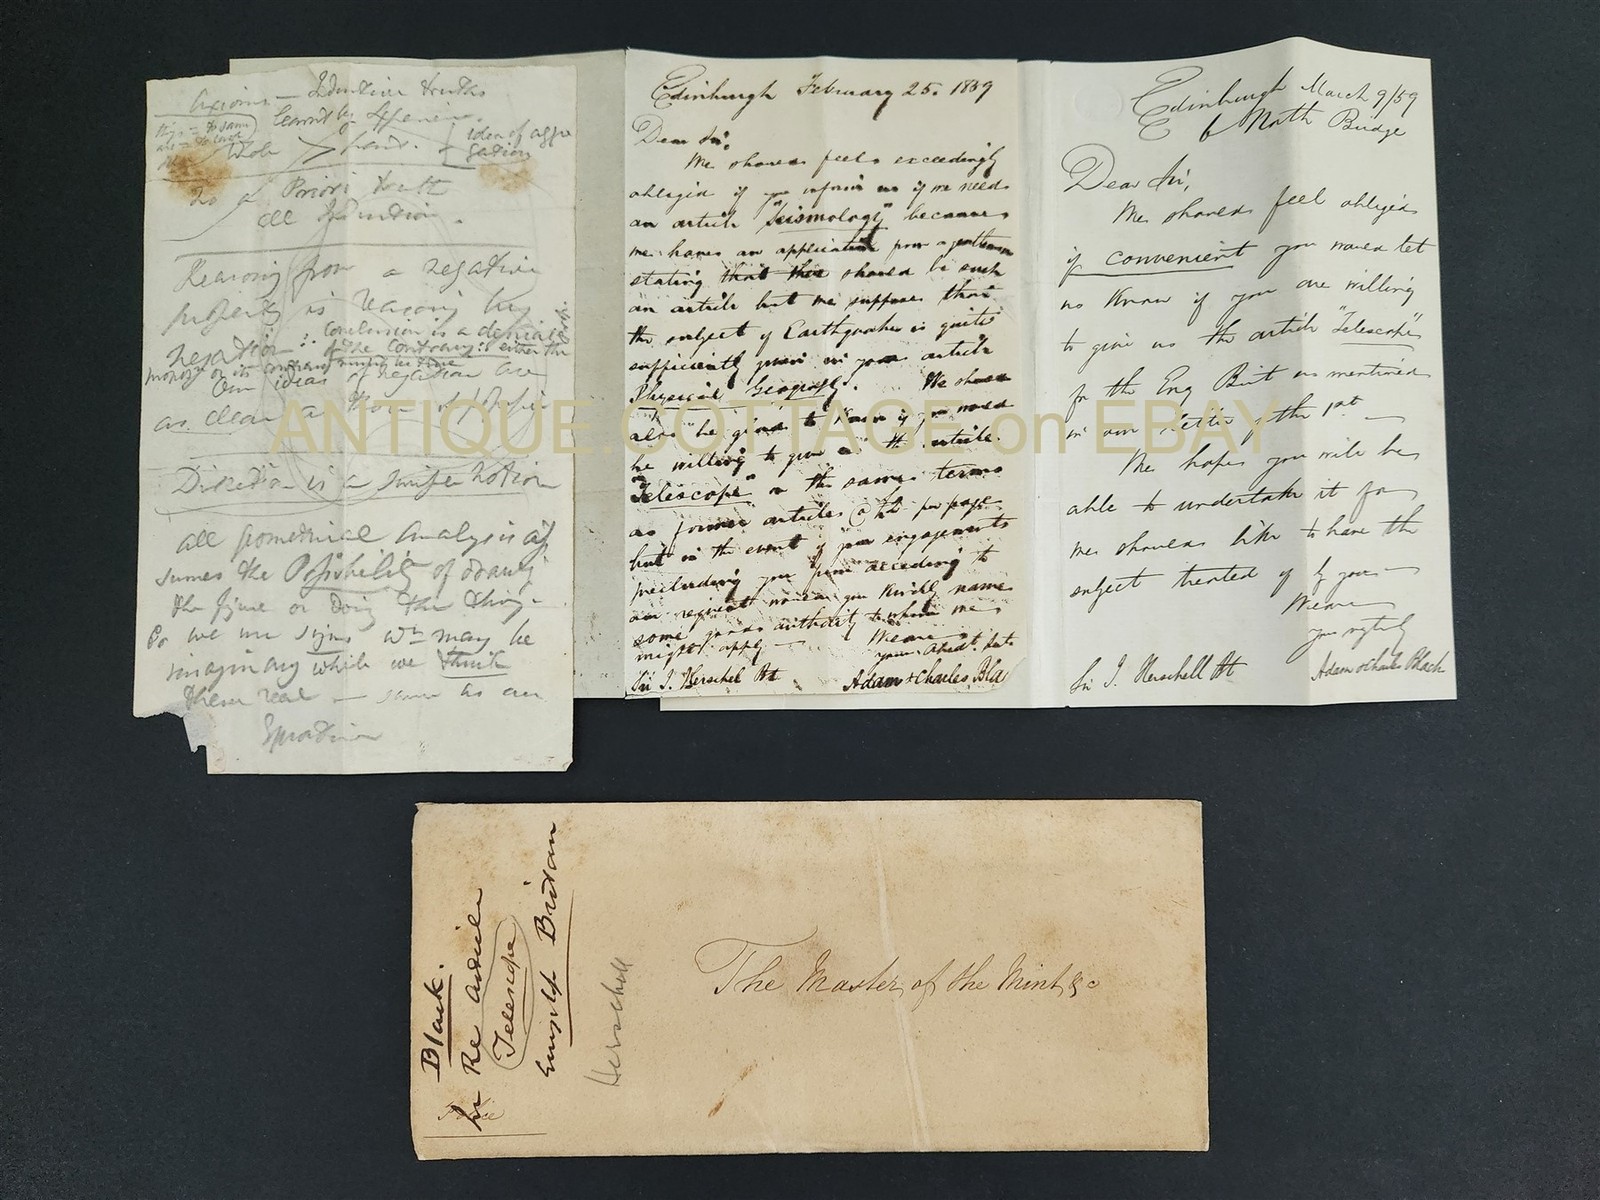 Axioms — Inductive truths
learnt by
Whole > part.
idea of aggre
gation
a Priori truth
all Induction.
Reasoning from a negative
property is reasoning by
negation ∴ Conclusion is a denial
of the contrary ∴ either the
Our ideas of negation are
as clear as those of
Direction is a simple notion
all geometrical Analysis as
sumes the Possibility of drawing
the figure or doing the thing.
So we use signs wch may be
imaginary while we think
them real — same as an
Equation
Edinburgh February 25. 1859
Dear Sir,
We should feel exceedingly
obliged if you inform us if we need
an article "Seismology" because
we have an application from a gentleman
stating that there should be such
an article but we suppose that
the subject of Earthquakes is quite
sufficiently given in your article
Physical Geography. We should
also be glad to know if you would
be willing to give us the article
"Telescope" on the same terms
as former articles @ per page
but in the event of your engagements
precluding you from acceding to
our request would you kindly name
some good authority to whom we
might apply — We are
your obedt. Servts
Sir J. Herschel Bt Adam & Charles Black
Edinburgh March 9/59
6 North Bridge
Dear Sir,
We should feel obliged
if convenient you would let
us know if you are willing
to give us the article "Telescope"
for the Ency Brit as mentioned
in our letter of the 1st —
We hope you will be
able to undertake it for
we should like to have the
subject treated of by you —
We are
yours respectfully
Sir J. Herschell Bt Adam & Charles Black
ANTIQUE.COTTAGE on EBAY
Black.
Re Article
Telescope
Encyclp Britan
Herschell
The Master of the Mint &c